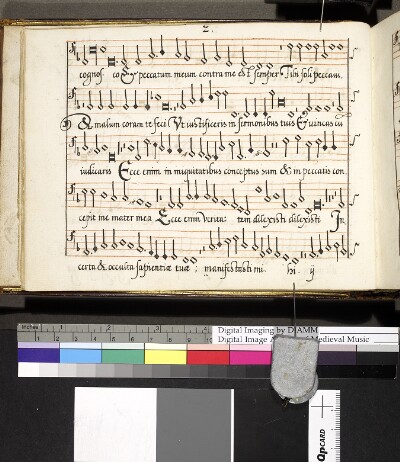 2.
cognos co & peccatum meum contra me est semper. Tibi soli peccavi,
& malum coram te feci Vt iustificeris in sermonibus tuis & vincas cū
iudicaris Ecce enim in iniquitatibus conceptus sum & in peccatis con
cepit me mater mea Ecce enim verita: tem dilexisti dilexisti In
certa & occulta sapientiæ tuæ : manifestasti mi. hi. ij
inches 1 2 3 4
cm 1 2 3 4 5 6 7 8 9
Digital Imaging by DIAMM
Digital Image Medieval Music
QPCARD